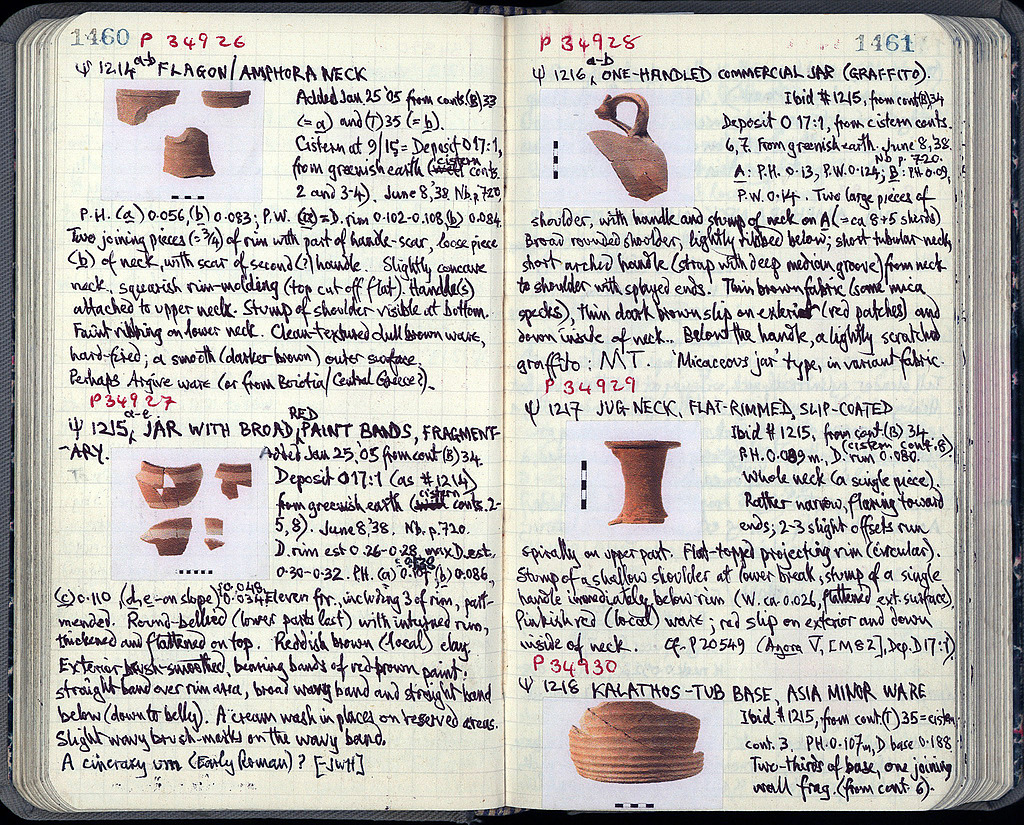 1460 P 34926
Ψ 1214 a-b FLAGON/AMPHORA NECK
Added Jan 25 '05 from conts. (B) 33
(= a) and (T) 35 (= b).
Cistern at 9/15 = Deposit O 17:1,
from greenish earth (cistern conts.
2 and 3-4). June 8, '38. Nb. p. 720
P.H. (a) 0.056, (b) 0.083; P.W. (a) = D. rim 0.102-0.108, (b) 0.084.
Two joining pieces (= 3/4) of rim with part of handle-scar, loose piece
(b) of neck, with scar of second (?) handle. Slightly concave
neck, squarish rim-molding (top cut off flat). Handle(s)
attached to upper neck. Stump of shoulder visible at bottom.
Faint ribbing on lower neck. Clean-textured dull brown ware,
hard-fired; a smooth (darker brown) outer surface.
Perhaps Argive ware (or from Boiotia/Central Greece?).
P 34927
Ψ 1215 a-e, JAR WITH BROAD RED PAINT BANDS, FRAGMENT-
ARY.
Added Jan 25 '05 from cont (B) 34.
Deposit O 17:1 (as # 1214)
from greenish earth (cistern conts. 2-
5, 8). June 8 '38. Nb. p. 720.
D. rim est 0.26-0.28, max D. est.
0.30-0.32. P.H. (a) (b) 0.086,
(c) 0.110, (d, e - on slope) 0.048, 0.034 Eleven frr., including 3 of rim, part-
mended. Round-bellied (lower parts lost) with inturned rim,
thickened and flattened on top. Reddish brown (local) clay.
Exterior brush-smoothed, bearing bands of red-brown paint:
straight band over rim area, broad wavy band and straight band
below (down to belly). A cream wash in places on reserved areas.
Slight wavy brush-marks on the wavy band.
A cinerary urn (Early Roman)? [-JWH]
P 34928 1461
Ψ 1216 a-b, ONE-HANDLED COMMERCIAL JAR (GRAFFITO).
Ibid # 1215, from cont (B) 34
Deposit O 17:1, from cistern conts.
6, 7. From greenish earth. June 8, 38.
Nb p. 720.
A: P.H. 0.13, P.W. 0.124; B: P.H. 0.09,
P.W. 0.14. Two large pieces of
shoulder, with handle and stump of neck on A (= ca 8+5 sherds)
Broad rounded shoulder, lightly ribbed below; short tubular neck,
short arched handle (strap with deep median groove) from neck
to shoulder with splayed ends. Thin brown fabric (some mica
specks), thin dark brown slip on exterior (red patches) and
down inside of neck. Below the handle, a lightly scratched
graffito: MT. 'Micaceous jar' type, in variant fabric.
P 34929
Ψ 1217 JUG NECK, FLAT-RIMMED, SLIP-COATED
Ibid # 1215, from cont (B) 34
(cistern cont. 8).
P.H. 0.089 m., D. rim 0.080.
Whole neck (a single piece).
Rather narrow, flaring toward
ends; 2-3 slight offsets run
spirally on upper part. Flat-topped projecting rim (circular).
Stump of a shallow shoulder at lower break; stump of a single
handle immediately below rim (W. ca 0.026, flattened ext. surface).
Pinkish red (local) ware; red slip on exterior and down
inside of neck. Cf. P 20549 (Agora V, [M82], Dep. D 17:1)
P 34930
Ψ 1218 KALATHOS-TUB BASE, ASIA MINOR WARE
Ibid # 1215, from cont (T) 35 = cistern
cont. 3. P.H. 0.107 m, D base 0.188
Two-thirds of base, one joining
wall frag. (from cont 6).